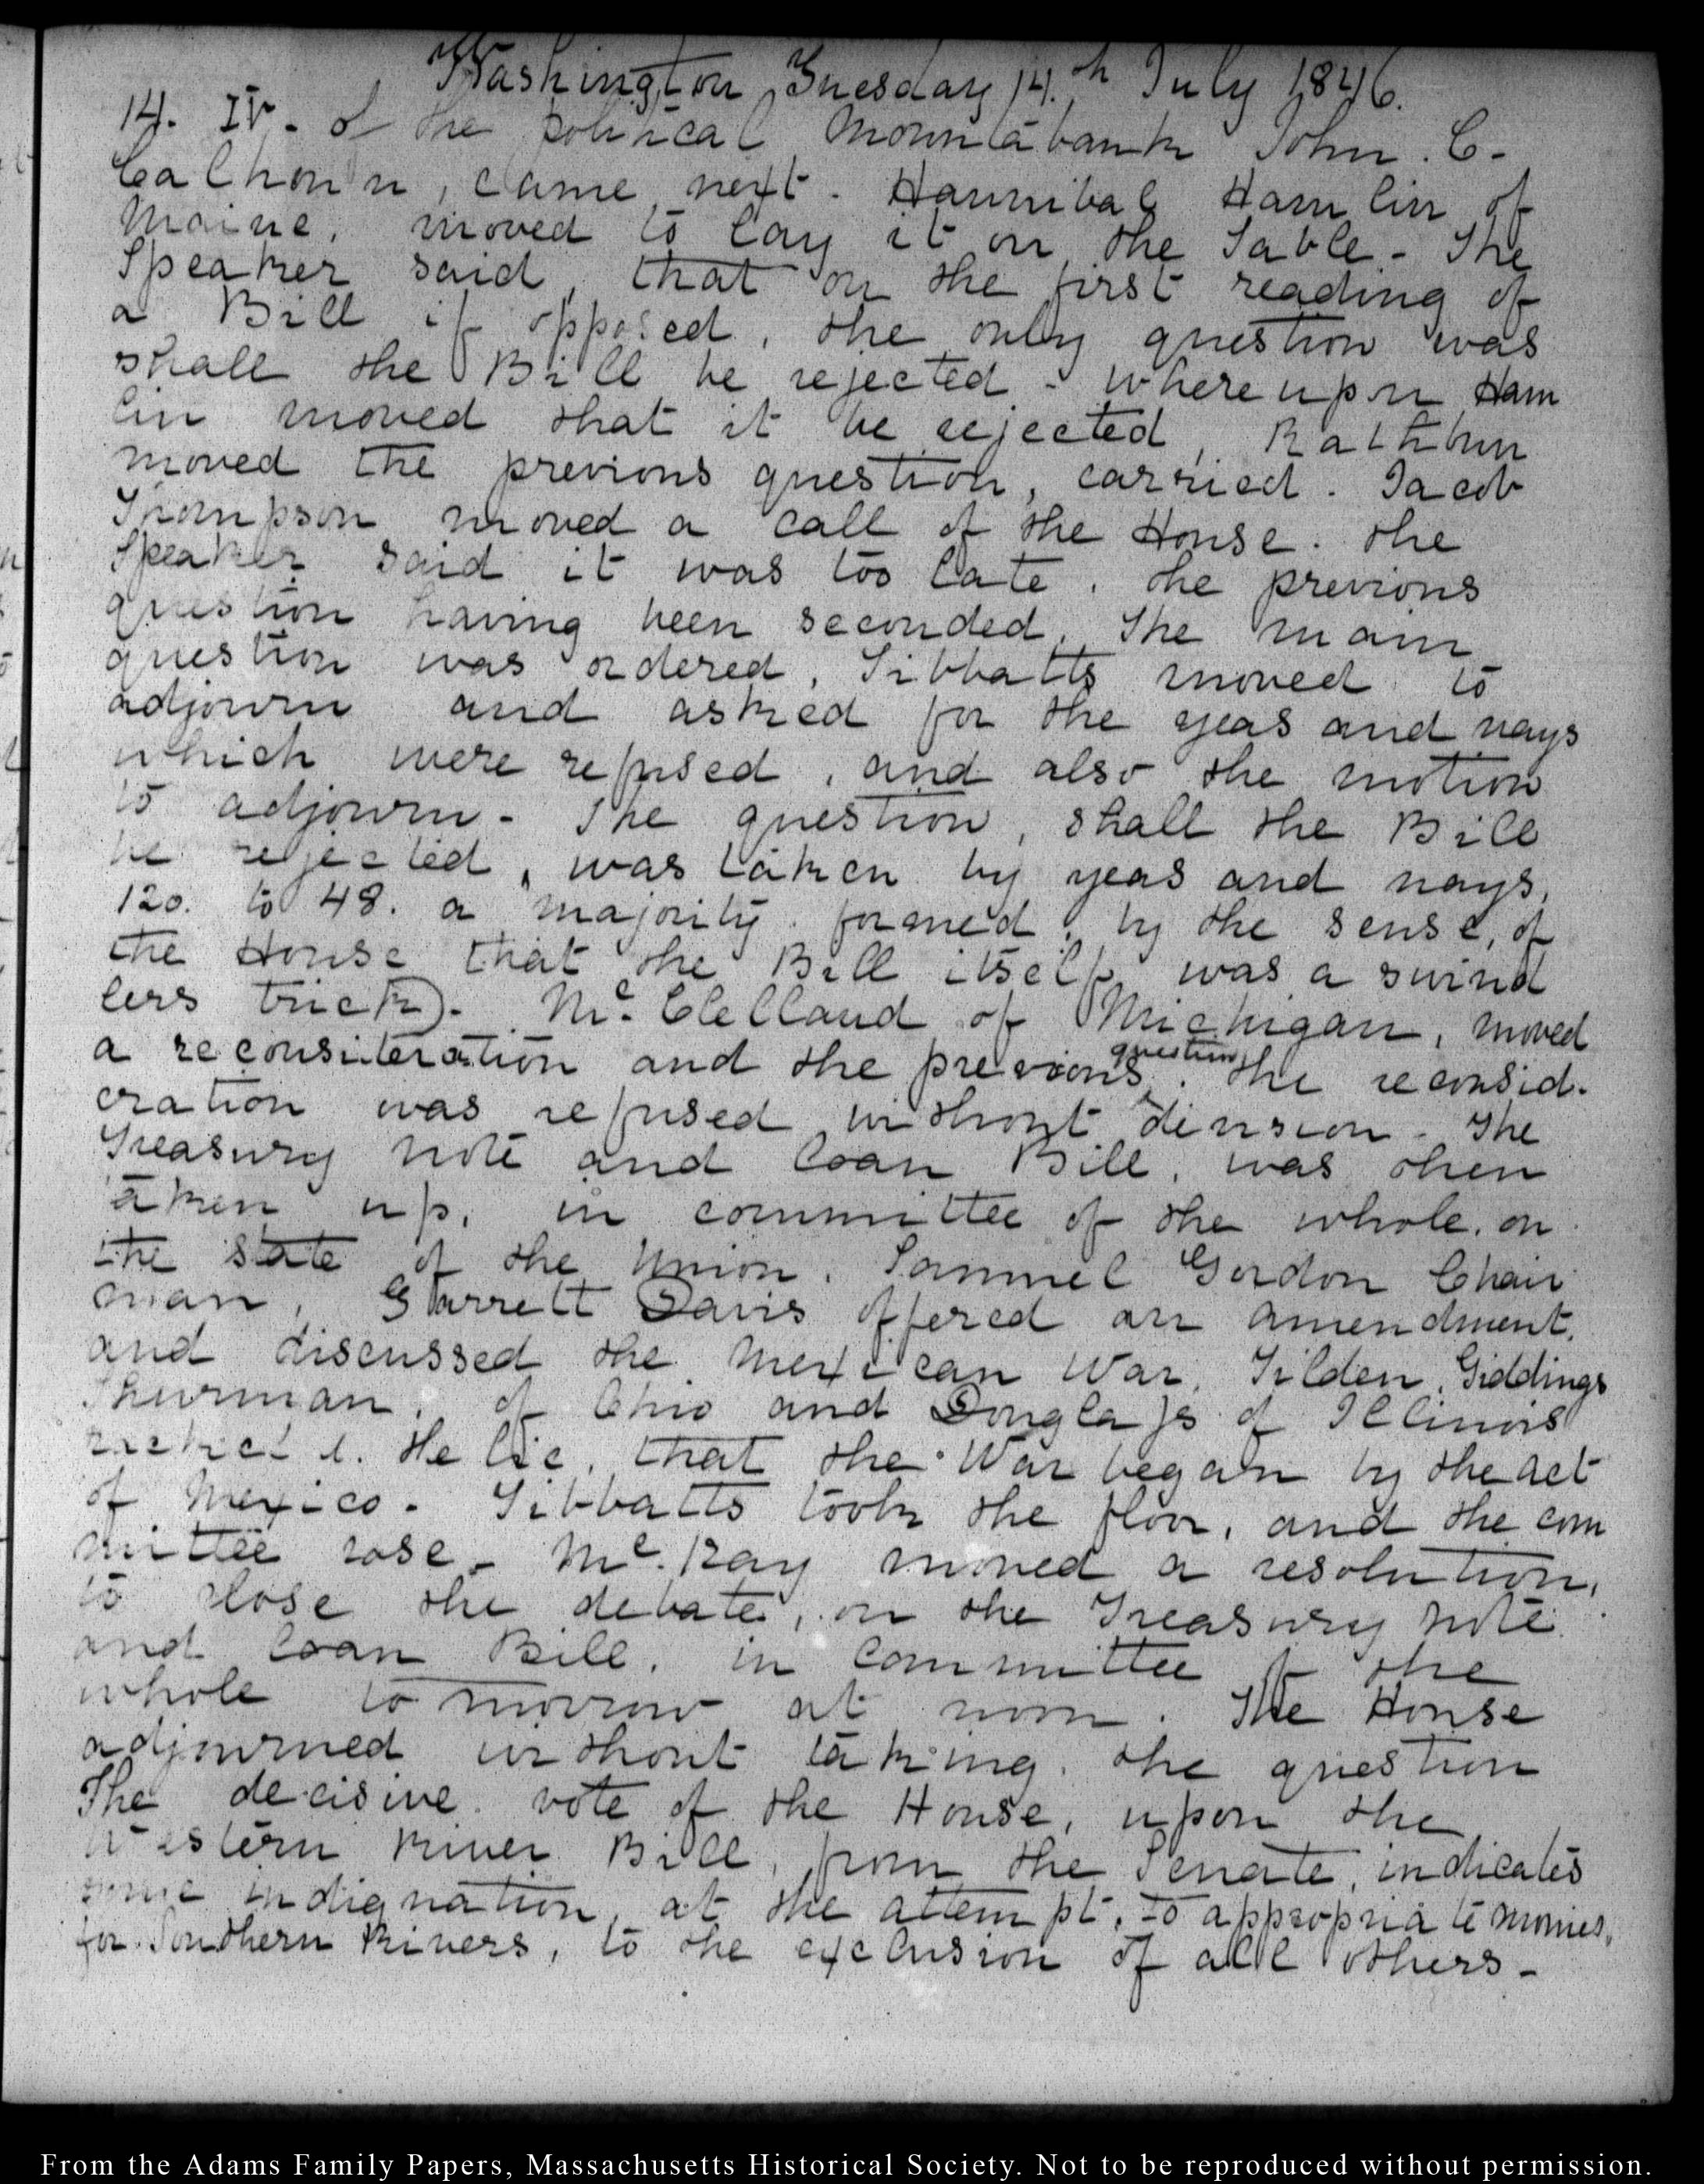 Washington Tuesday 14.th July 1846.
14. IV. of the political Mountabank John. C-
Calhoun, came next. Hannibal Hamlin of
Maine, moved to lay it on the Table- The
Speaker said, that on the first reading of
a Bill if opposed, the only question was
shall the Bill be rejected - whereupon Ham
lin moved that it be rejected, Rathbun
moved the previous question, carried. Jacob
Thompson moved a call of the House. the
Speaker said it was too late. the previous
question having been seconded. The main
question was ordered, Tibbatts moved to
adjourn and asked for the yeas and nays
which were refused, and also the motion
to adjourn- The question, shall the Bill
be rejected, was taken by yeas and nays,
120. to 48. a majority formed, by the sense, of
the House that the Bill itself was a swind
lers trick)- Mc. Clelland of Michigan, moved
a reconsideration and the previous question. the reconsid-
eration was refused without division. The
Treasury note and loan Bill, was then
taken up, in committee of the whole. on
the state of the Union. Samuel Gordon Chair
man, Garrett Davis offered an amendment,
and discussed the Mexican War. Tilden, Giddings
Thurman, of Ohio and Douglass of Illinois
the lie, that the War began by the act
of Mexico- Tibbatts took the floor, and the com
mittee rose- Mc. Kay moved a resolution,
to close the debate, on the Treasury note
and loan Bill, in Committee of the
whole to morrow at noon. The House
adjourned without taking. the question
The decisive vote of the House, upon the
Western River Bill, from the Senate, indicates
some indignation, at the attempt, to appropriate monies,
for Southern Rivers, to the exclusion of all others-
From the Adams Family Papers, Massachusetts Historical Society. Not to be reproduced without permission.